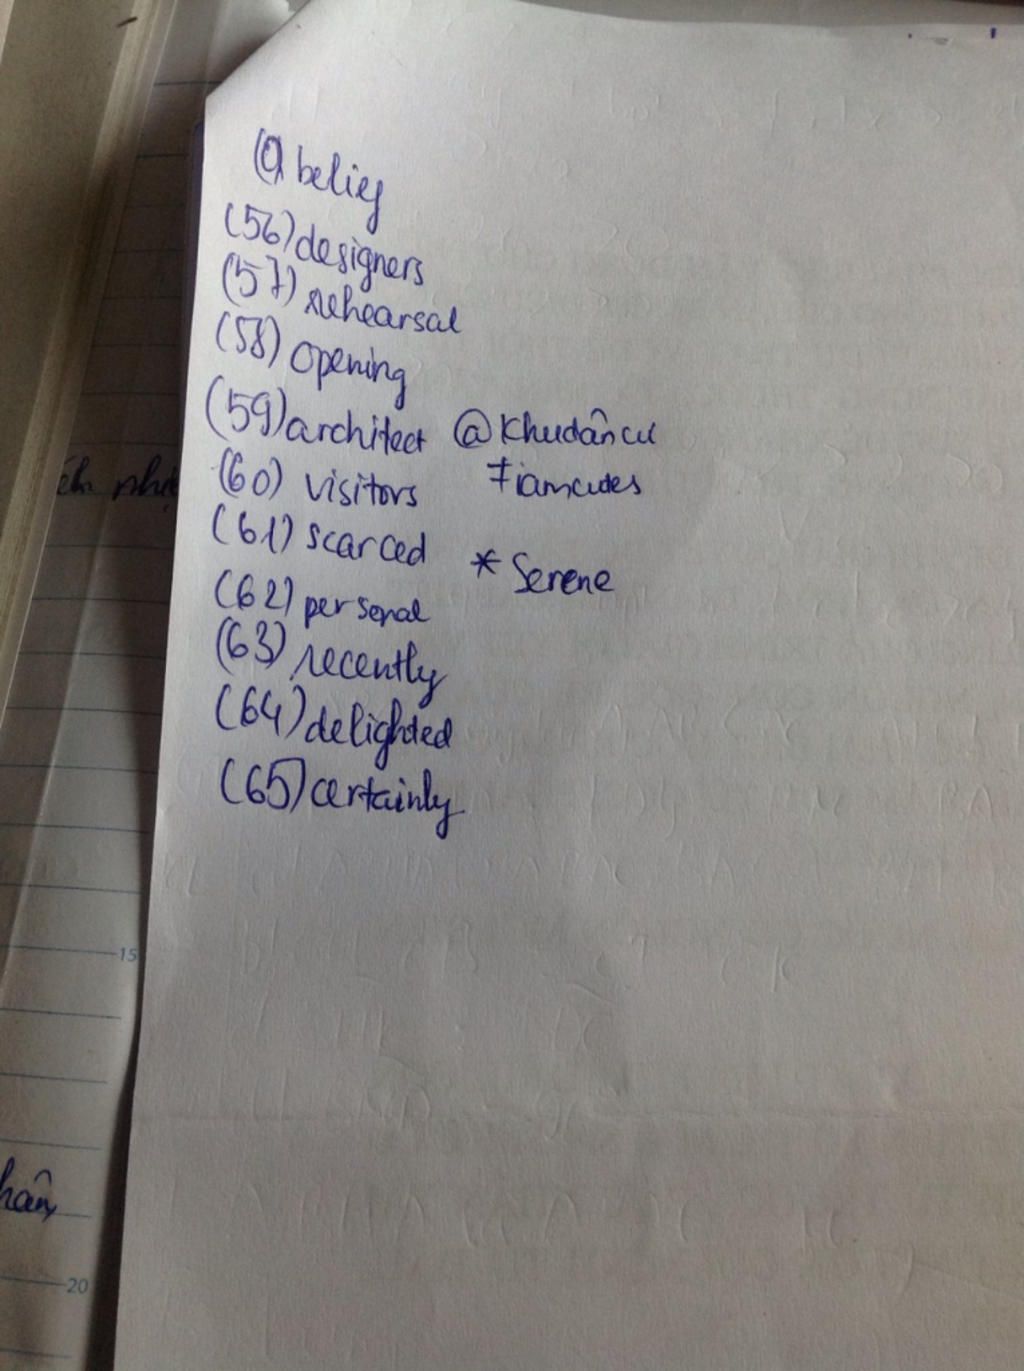 (0) belief
(56) designers
(57) rehearsal
(58) opening
(59) architect @Khudâncu
(60) visitors 7iamcutes
(61) scarced
* Serene
(62) personal
(63) recently
(64) delighted
(65) certainly
15
20